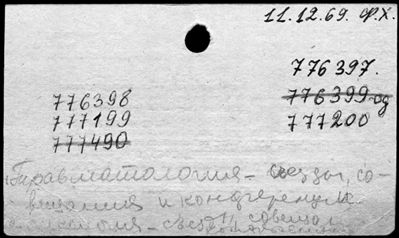 11.12.69. Ф.Х.
776397.
776398 776399
777199 777200
777490
Травматология - съезды, со-
вещания и конференции
съезды, совещан